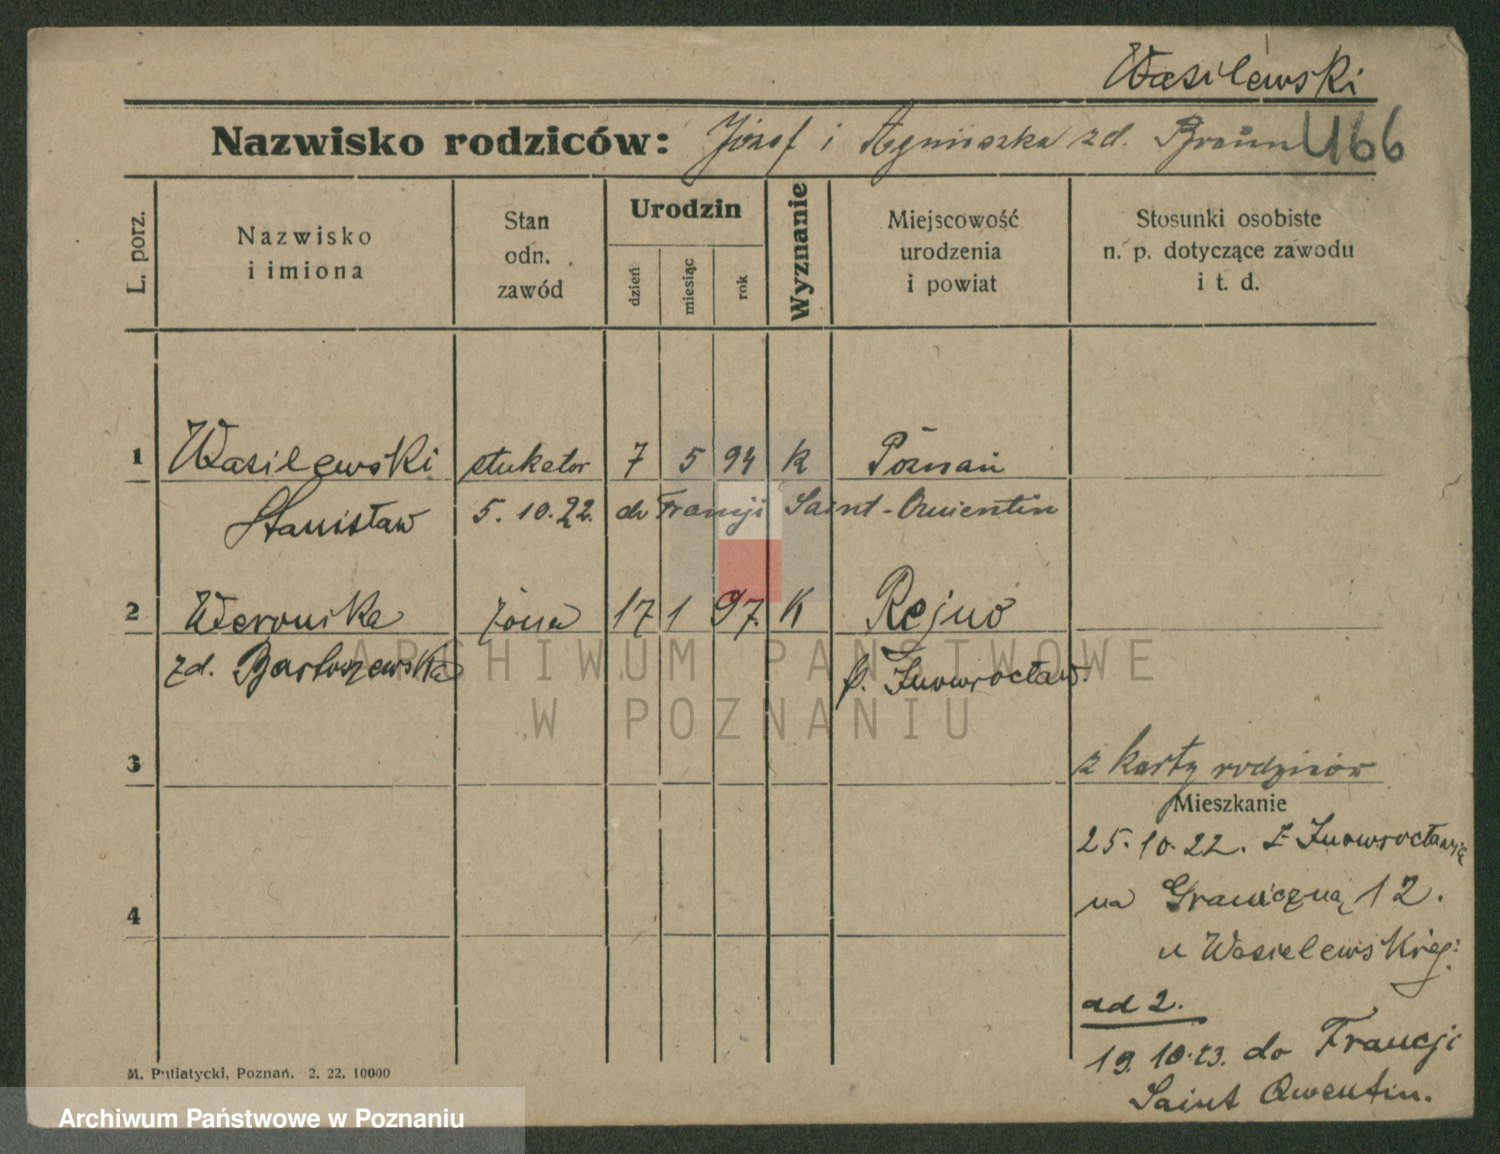 Wasilewski
Nazwisko rodziców: Józef i Agnieszka zd. Braun U66
L. porz.
Nazwisko
i imiona
Stan
odn.
zawód
Urodzin
dzień
miesiąc
rok
Wyznanie
Miejscowość
urodzenia
i powiat
Stosunki osobiste
n. p. dotyczące zawodu
i t. d.
1 Wasilewski stukator 7 5 94 k Poznań
Stanisław 5. 10. 22. do Francji Saint-Quientin
2 Weronika żona 17 1 97. K Rejno
zd. Bartoszewska p. Inowrocław.
ARCHIWUM PAŃSTWOWE
W POZNANIU
3 z karty rodziców
Mieszkanie
25. 10. 22. z Inowrocławia
4 na Graniczną 12.
u Wasielewskieg.
ad 2.
19. 10. 23. do Francji
Saint Qwentin.
M. Putiatycki, Poznań. 2. 22. 10000
Archiwum Państwowe w Poznaniu